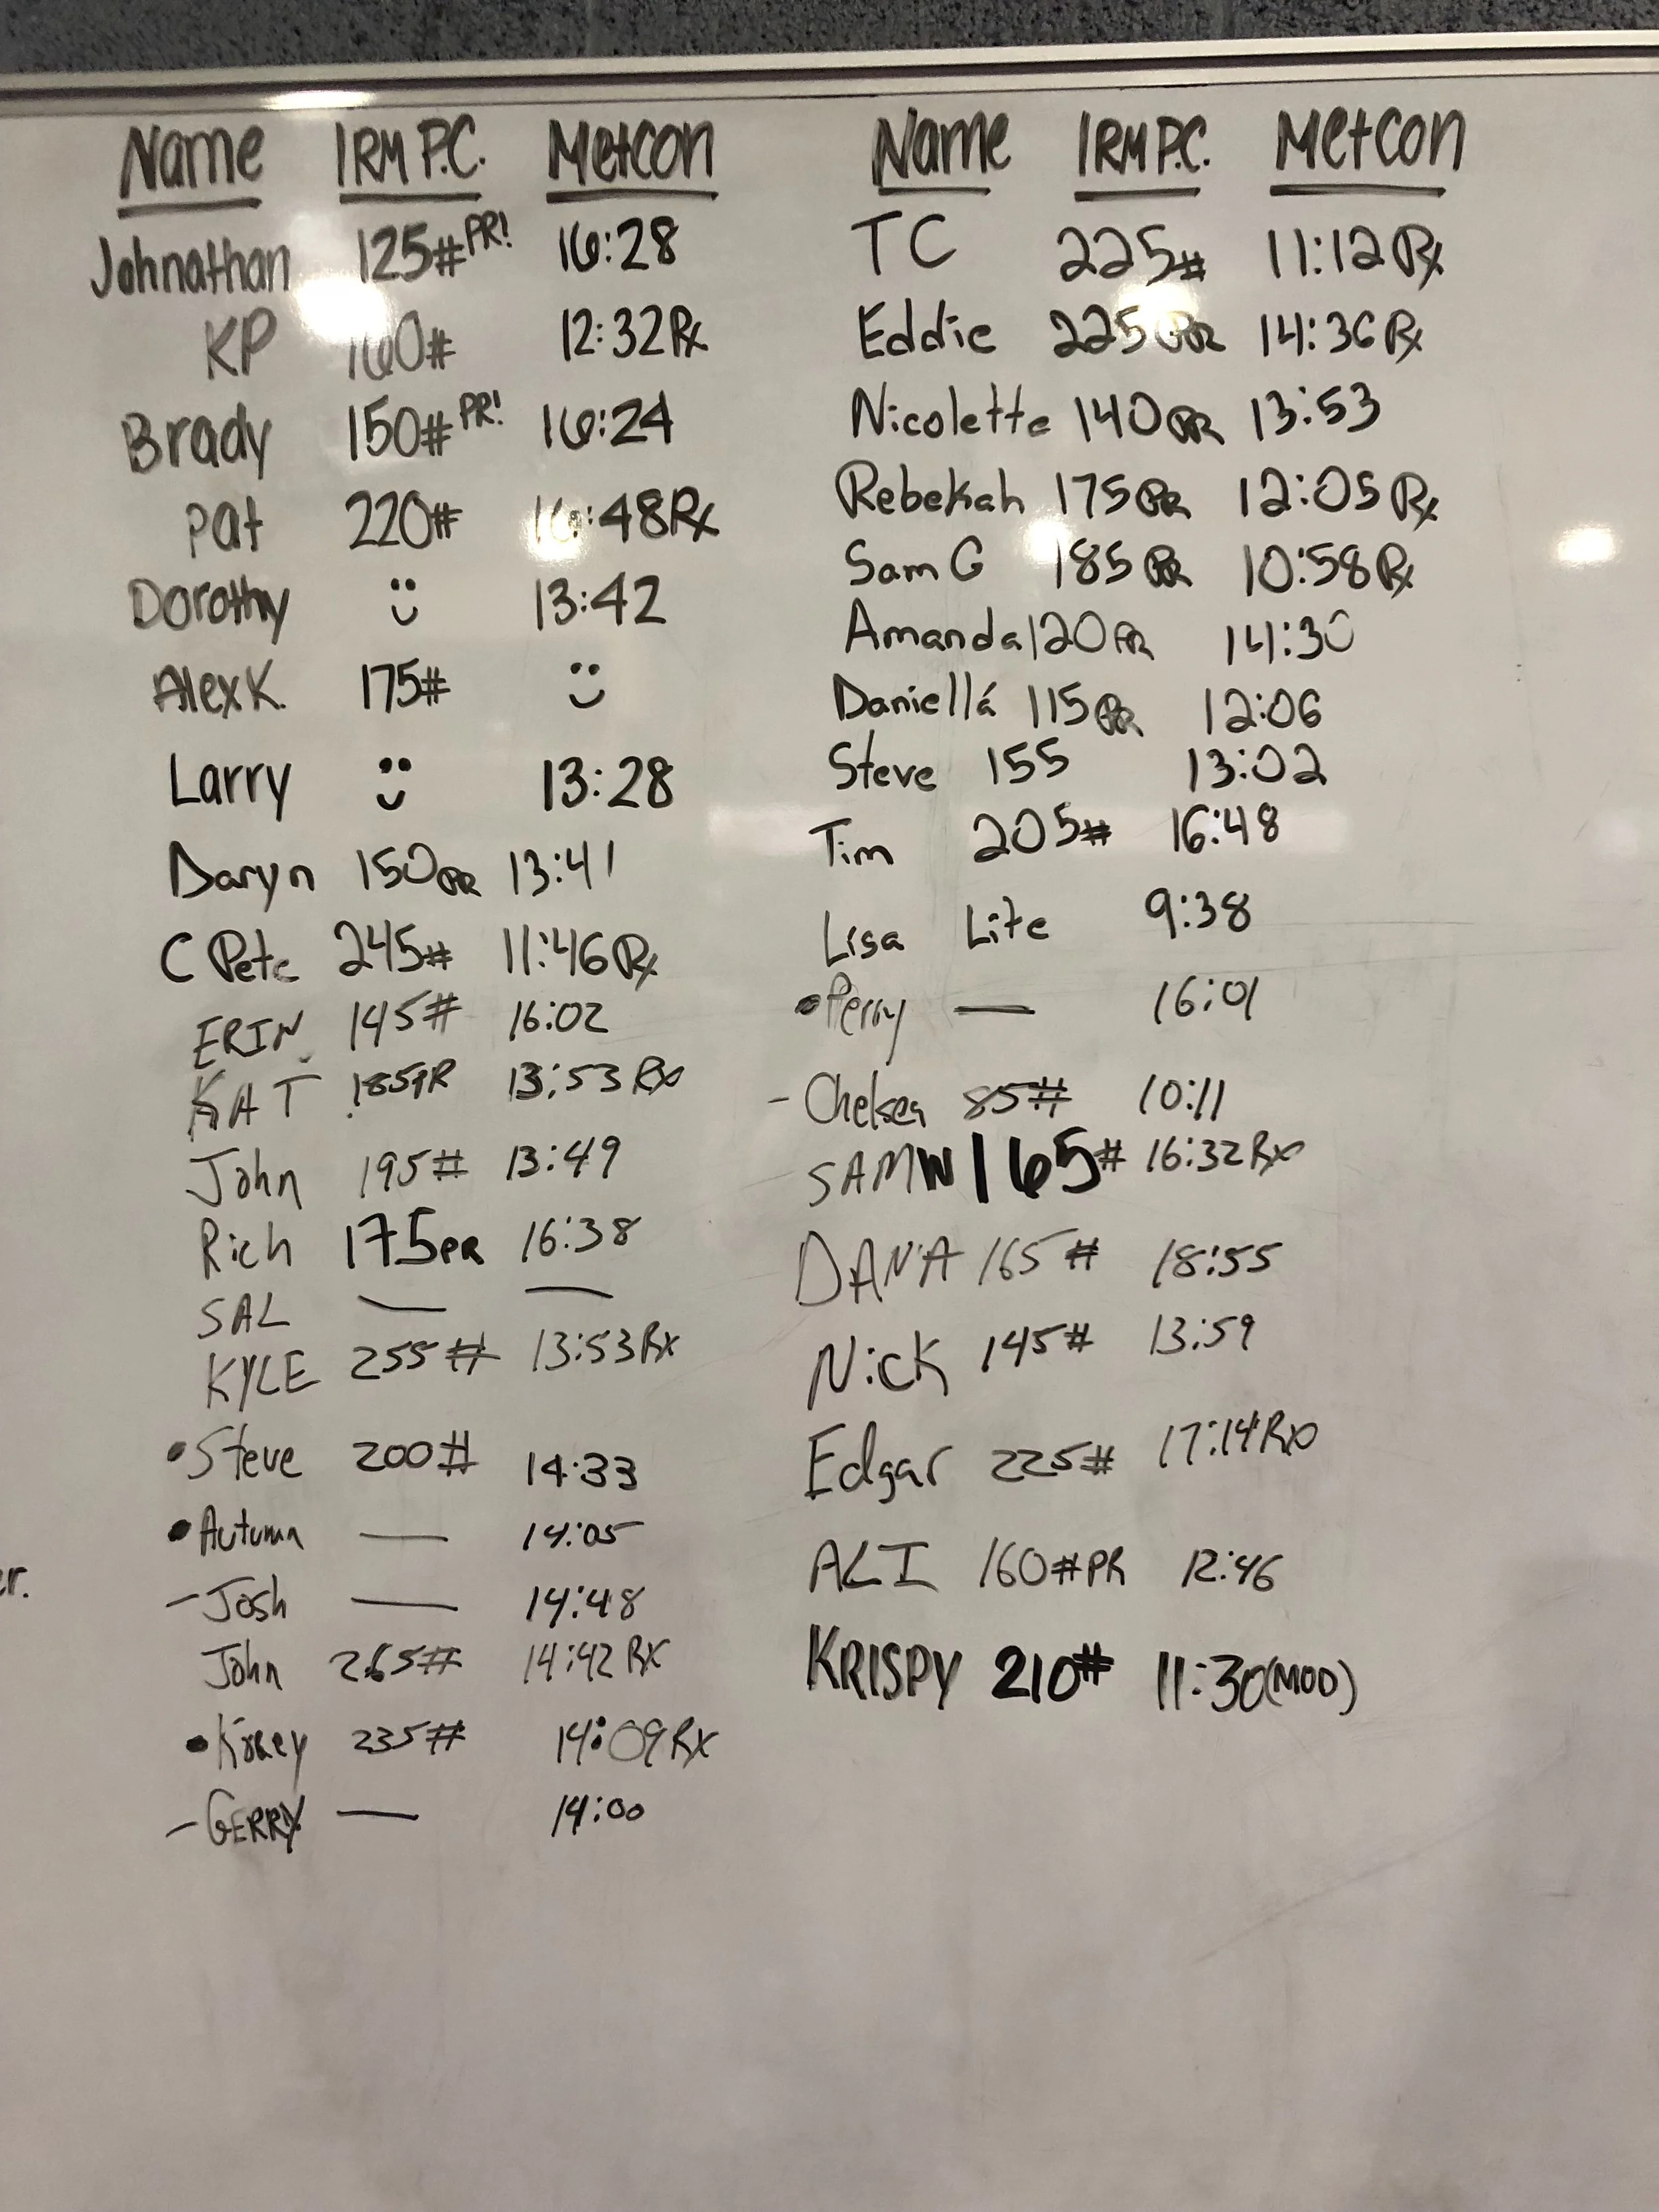 Name 1RM P.C. Metcon
Johnathan 125# PR! 16:28
KP 160# 12:32 Rx
Brady 150# PR! 16:24
Pat 220# 16:48 Rx
Dorothy 13:42
Alex K. 175#
Larry 13:28
Daryn 150 PR 13:41
C Pete 245# 11:46 Rx
ERIN 145# 16:02
KAT 185 PR 13:53 Rx
John 195# 13:49
Rich 175 PR 16:38
SAL — —
KYLE 255# 13:53 Rx
• Steve 200# 14:33
• Autumn — 14:05
- Josh — 14:48
John 265# 14:42 RX
• 235# 14:09 RX
- GERRY — 14:00
er.
Name 1RM P.C. Metcon
TC 225# 11:12 Rx
Eddie 225 PR 14:36 Rx
Nicolette 140 PR 13:53
Rebekah 175 PR 12:05 Rx
Sam G 185 PR 10:58 Rx
Amanda 120 PR 14:30
Daniella 115 PR 12:06
Steve 155 13:02
Tim 205# 16:48
Lisa Lite 9:38
• Perry — 16:01
- Chelsea 85# 10:11
SAM W 165# 16:32 Rx
DANA 165# 18:55
Nick 145# 13:59
Edgar 225# 17:14 Rx
ALI 160# PR 12:46
KRISPY 210# 11:30 (MOD)